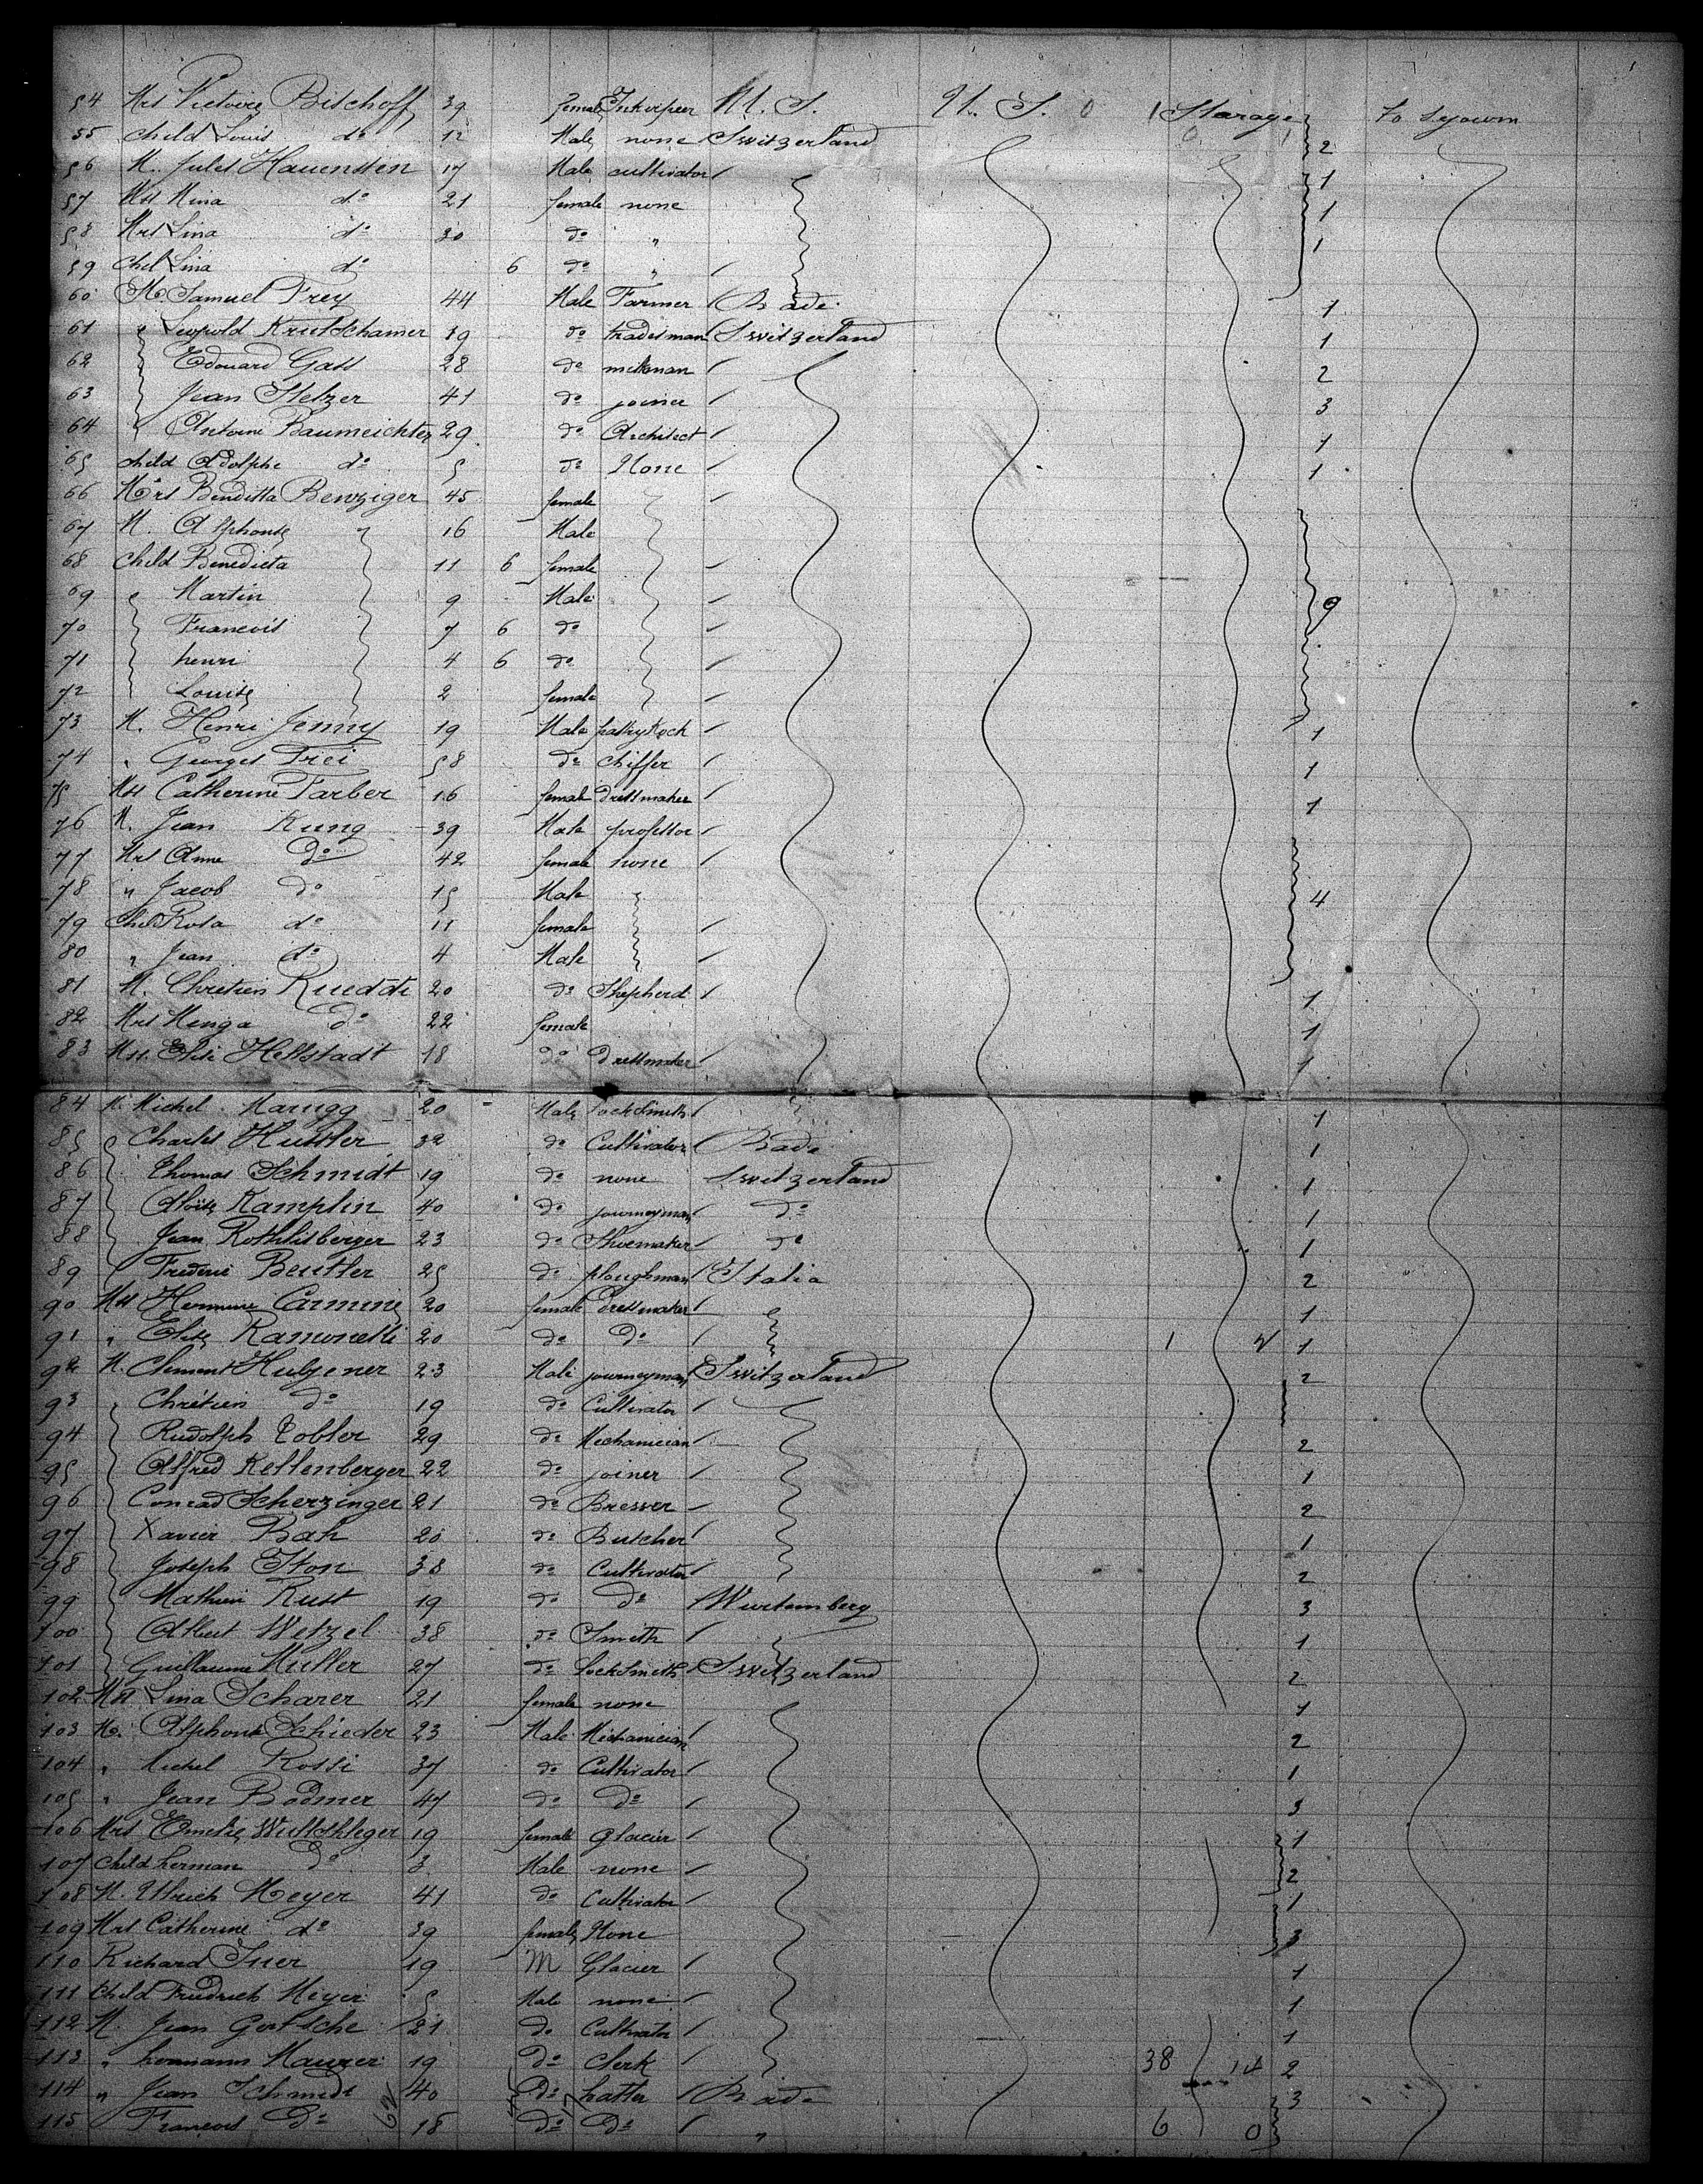 54 Mrs Victoire Bischoff 39 female Inkeeper U. S. U. S. Starage to sejourn
55 child Louis do 12 Male none Switzerland 2
56 M. Jules Hauensten 17 Male cultivator 1
57 Mss Mina do 21 female none 1
58 Mrs Lina do 30 do " 1
59 Chel Lina do 6 do "
60 M. Samuel Frey 44 Male Farmer Bade 1
61 " Leopold 39 do tradesman Switzerland 1
62 Edouard Gass 28 do milkman 2
63 Jean Stelzer 41 do joiner 3
64 Antoine Baumeichter 29 do Architect 1
65 child Adolphe do 5 do None 1
66 Mrs Benditta Benziger 45 female
67 M. Alphonse 16 Male
68 Child Benedicta 11 6 female
69 " Martin 9 Male 9
70 Francois 7 6 do
71 henri 4 6 do
72 Louise 2 female
73 M. Henri Jenny 19 Male 1
74 " Georges Frei 58 do chiffer 1
75 Mss Catherine Farber 16 femal dressmaker 1
76 M. Jean Kung 39 Male professor
77 Mrs Anne do 42 female none
78 " Jacob do 15 Male 4
79 Chel Rosa do 11 female
80 " Jean do 4 Male
81 M. Chretien Ruedde 20 do Shepherd 1
82 Mrs Menga do 22 female 1
83 Mss. Elise Hellstadt 18 do dressmaker 1
84 M. Michel Marugg 20 Male lockSmith 1
85 Charles Hussler 32 do Cultivator Bade 1
86 Thomas Schmidt 19 do none Switzerland 1
87 Aloise Kamplin 40 do journeyman do 1
88 Jean Rothlisberger 23 do Shoemaker do 1
89 Frederic Beutler 25 do ploughman Italia 2
90 Mss Hermine Carmine 20 female Dressmaker 1
91 " Elise Ramonetti 20 do do 1 1
92 M. Clement 23 Male journeyman Switzerland 2
93 Chrétien do 19 do Cultivator
94 Rudolph Tobler 29 do Mechanician 2
95 Alfred Kellenberger 22 do joiner 1
96 Conrad Scherzinger 21 do Bresser 2
97 Xavier Bah 20 do Butcher 1
98 Joseph Iten 38 do Cultivator 2
99 Mathieu Rust 19 do do Wurtemberg 3
100 Albert Wetzel 38 do Smith 1
101 Guillaume Muller 27 do lockSmith Switzerland 2
102 Mss Lina Scharer 21 female none 1
103 M. Alphonse Schieder 23 Male Mechanician 2
104 " Michel Rossi 37 do Cultivator 1
105 " Jean Bodmer 47 do do 3
106 Mrs Emelie Wullschleger 19 female Glacier 1
107 Child herman do 3 Male none 2
108 M. Ulrich Meyer 41 do Cultivator 1
109 Mrs Catherine do 39 female None 3
110 Richard 19 M Glacier 1
111 Child Friedrich Meyer 5 Male none 1
112 M. Jean Gertsche 21 do Cultivator 1
113 " hermann Maurer 19 do Clerk 38 14 2
114 " Jean Schmidt 40 do hatter Bade 3
115 Francois do 18 do do " 6 0